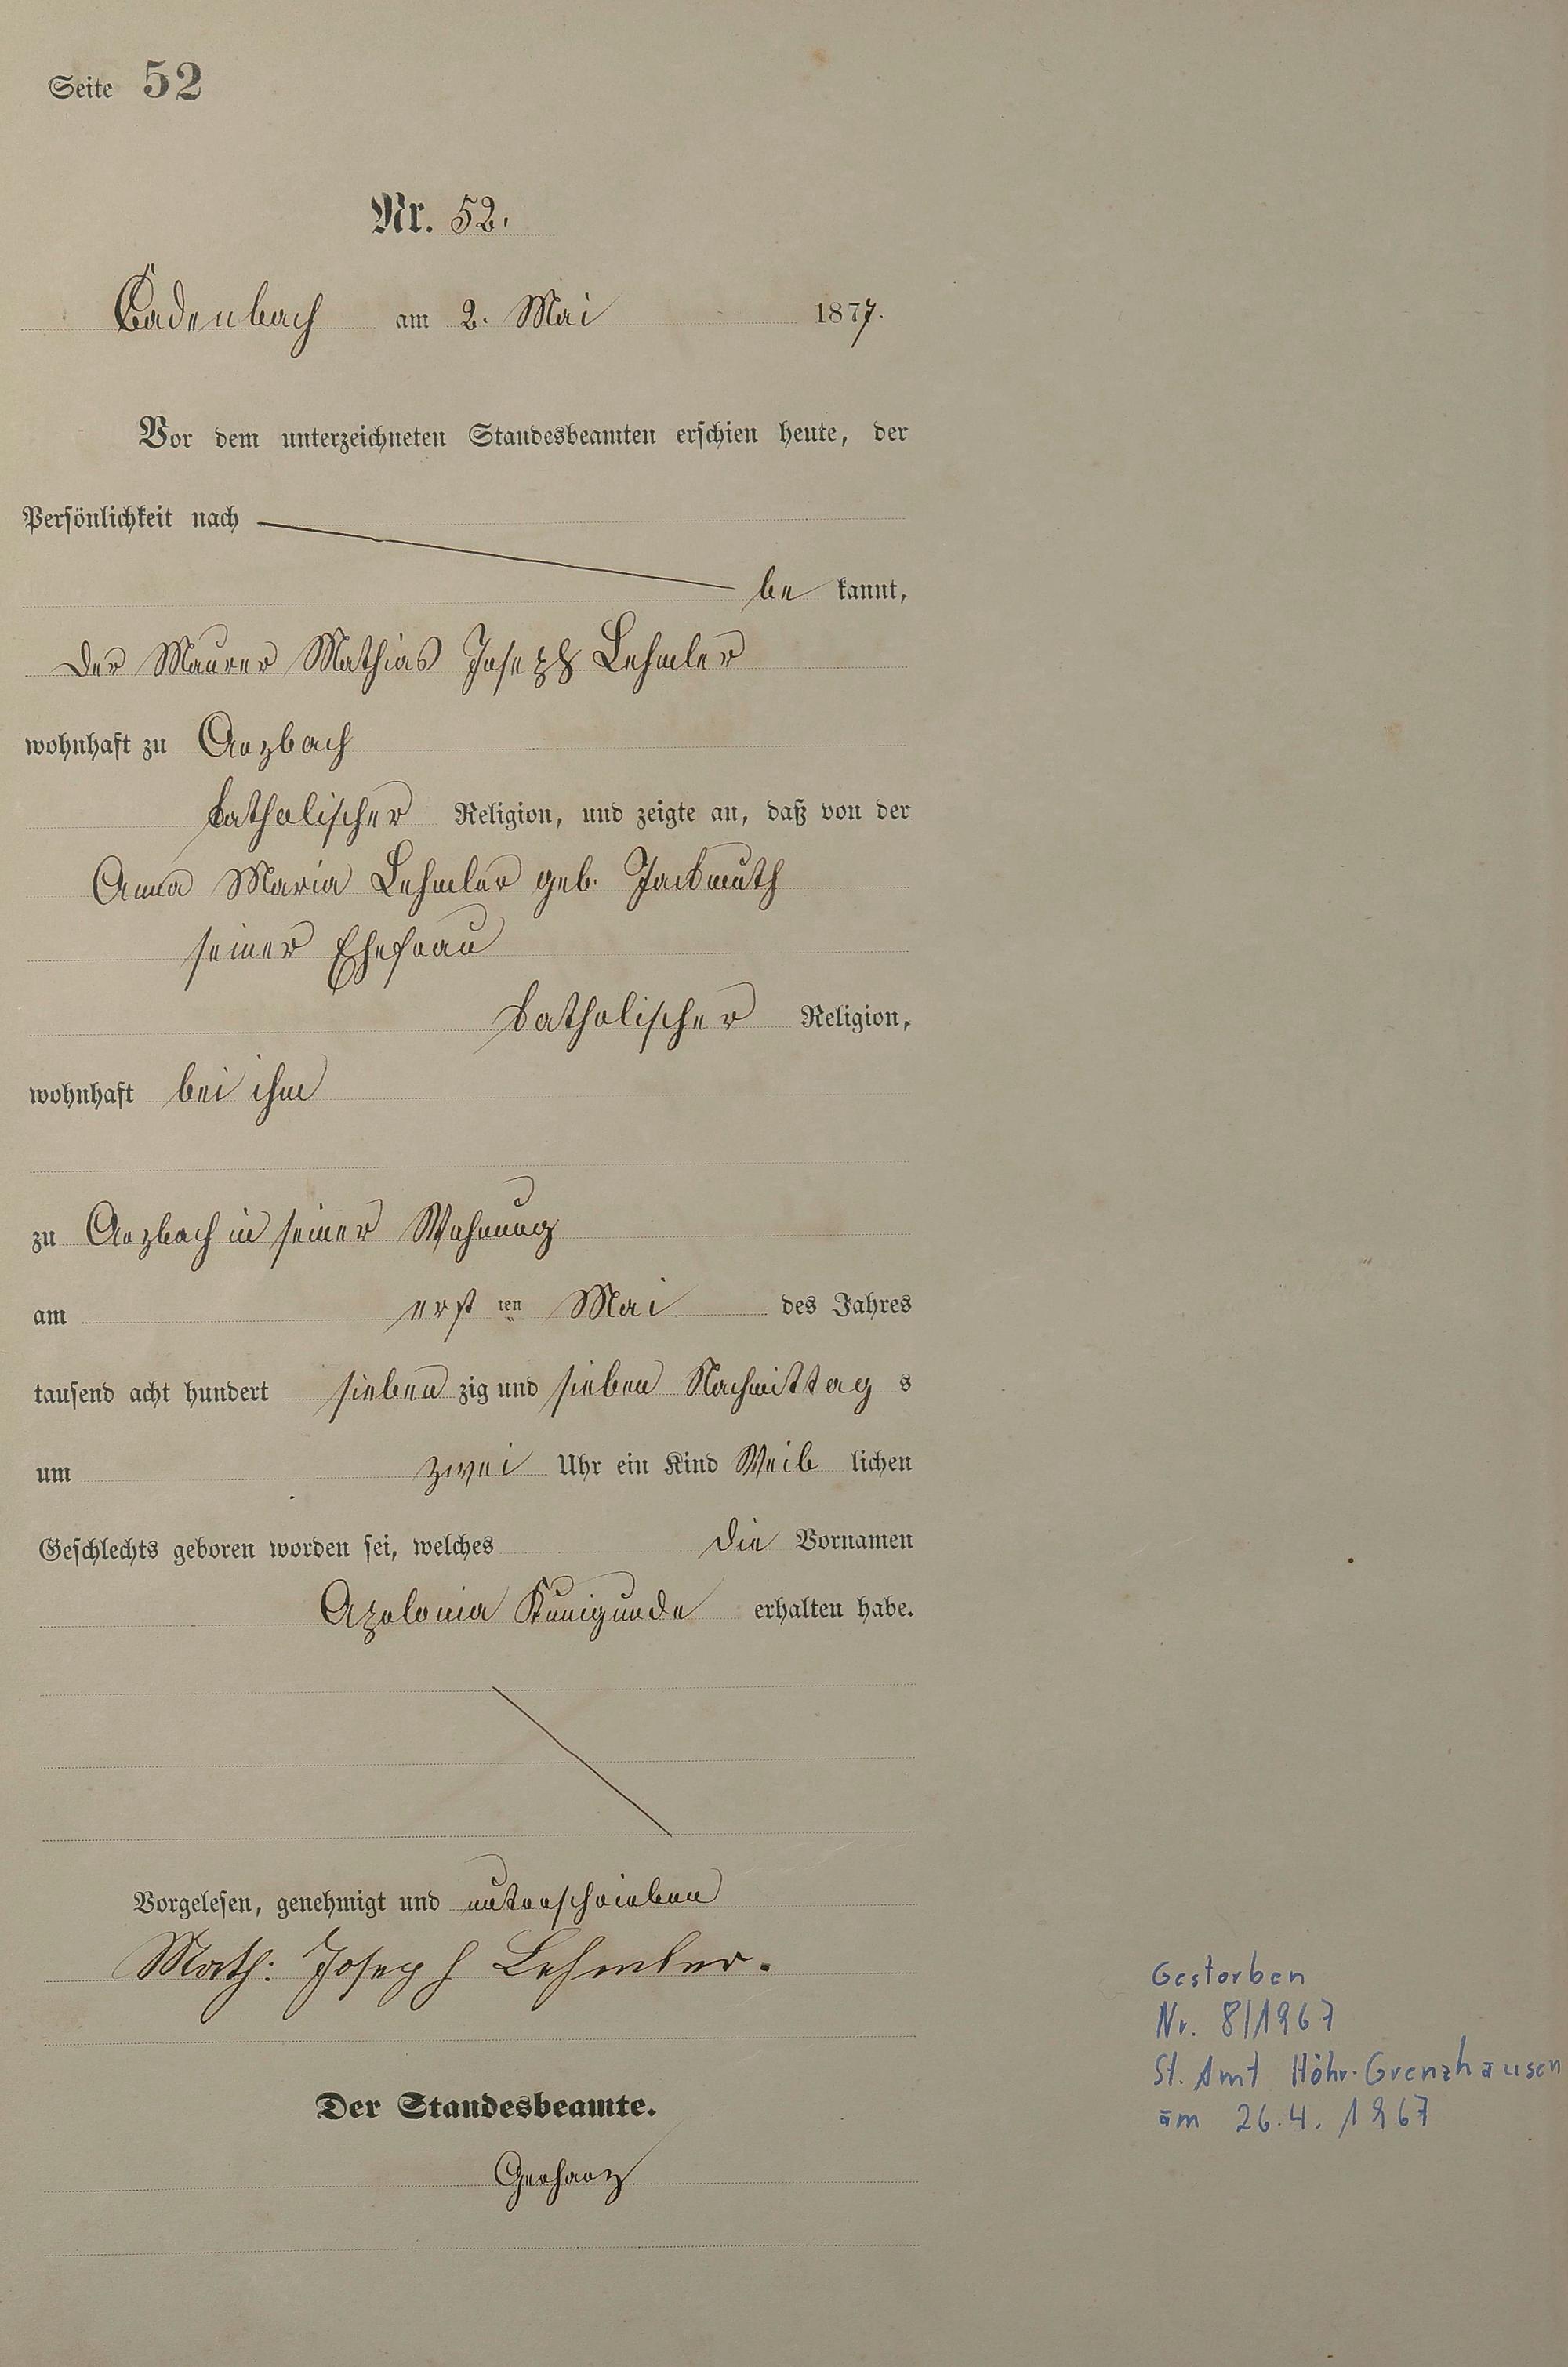 Seite 52
Nr. 52.
Cadenbach am 2. Mai 1877.
Vor dem unterzeichneten Standesbeamten erschien heute, der
Persönlichkeit nach
be kannt,
der Maurer Mathias Joseph Lehmler
wohnhaft zu Arzbach
katholischer Religion, und zeigte an, daß von der
Anna Maria Lehmler geb. Jackmuth
seiner Ehefrau
katholischer Religion,
wohnhaft bei ihm
zu Arzbach in seiner Wohnung
am erst ten Mai des Jahres
tausend acht hundert sieben zig und sieben Nachmittag s
um zwei Uhr ein Kind Weib lichen
Geschlechts geboren worden sei, welches die Vornamen
Apolonia Kunigunde erhalten habe.
Vorgelesen, genehmigt und unterschrieben
Math: Joseph Lehmler.
Der Standesbeamte.
Gerharz
Gestorben
Nr. 8/1967
St. Amt Höhr-Grenzhausen
am 26.4.1967